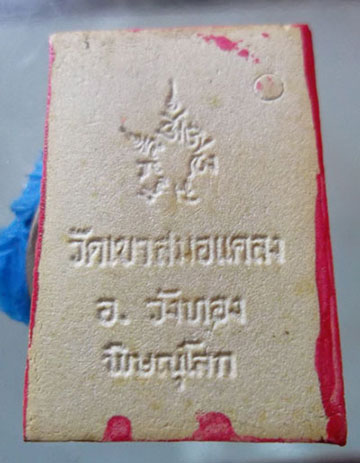 วัดเขาสมอแคลง
อ. วังทอง
พิษณุโลก